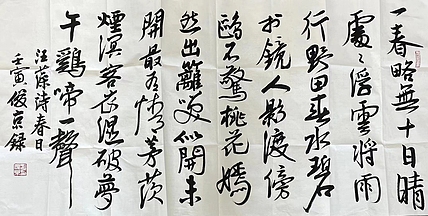 一春略無十日晴
處々浮雲將雨
行野田春水碧
於鏡人影渡傍
鷗不驚桃花嫣
然出籬笑似開未
開最有情茅茨
煙溟客衣濕破夢
午鷄啼一聲
汪藻詩春日
壬寅俊京錄